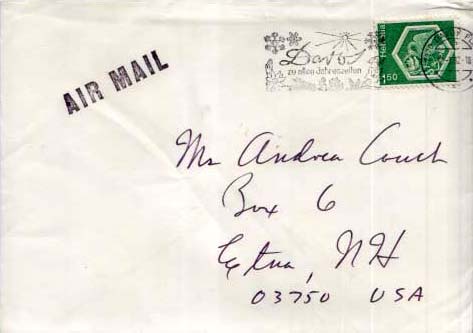 AIR MAIL
Davos
zu allen Jahreszeiten
Helvetia
150
Ms Andrea Couch
Box 6
Etna, NH
03750 USA